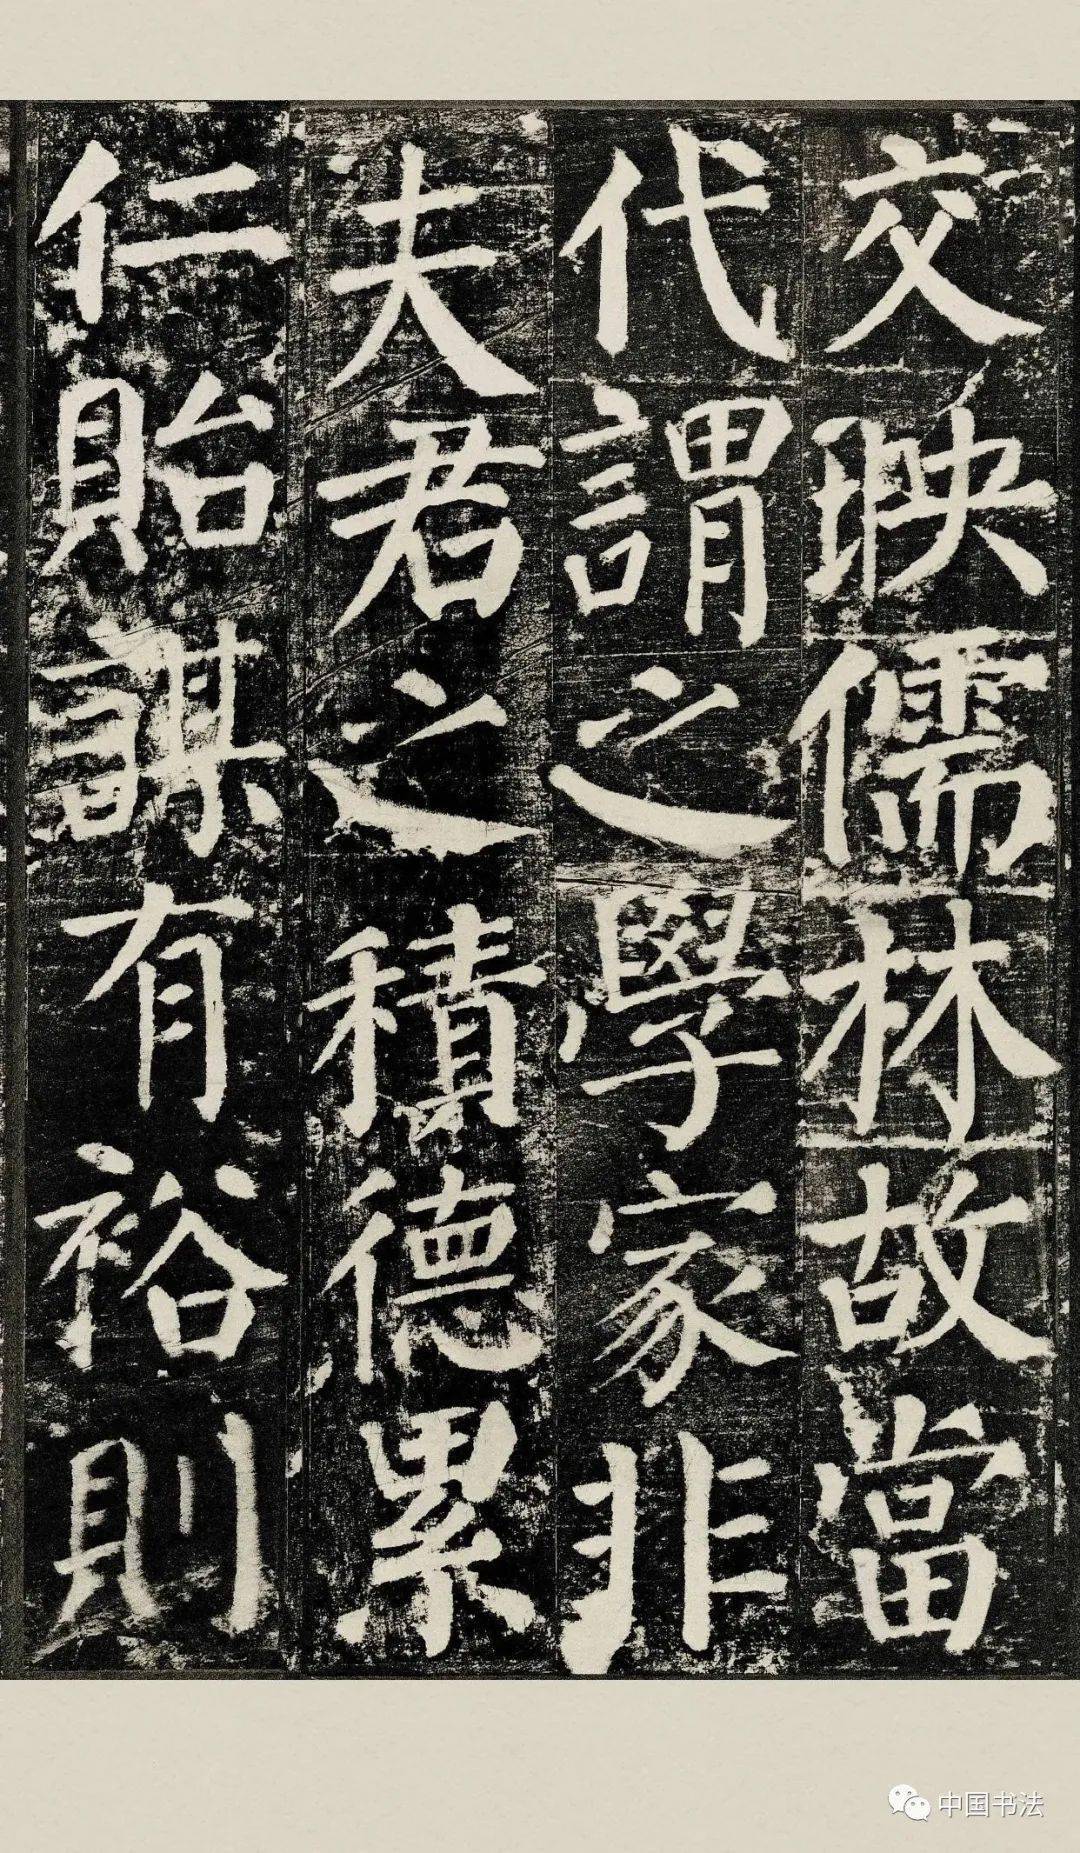 交映儒林故當
代謂之學家非
夫君之積德累
仁貽謀有裕則
中国书法